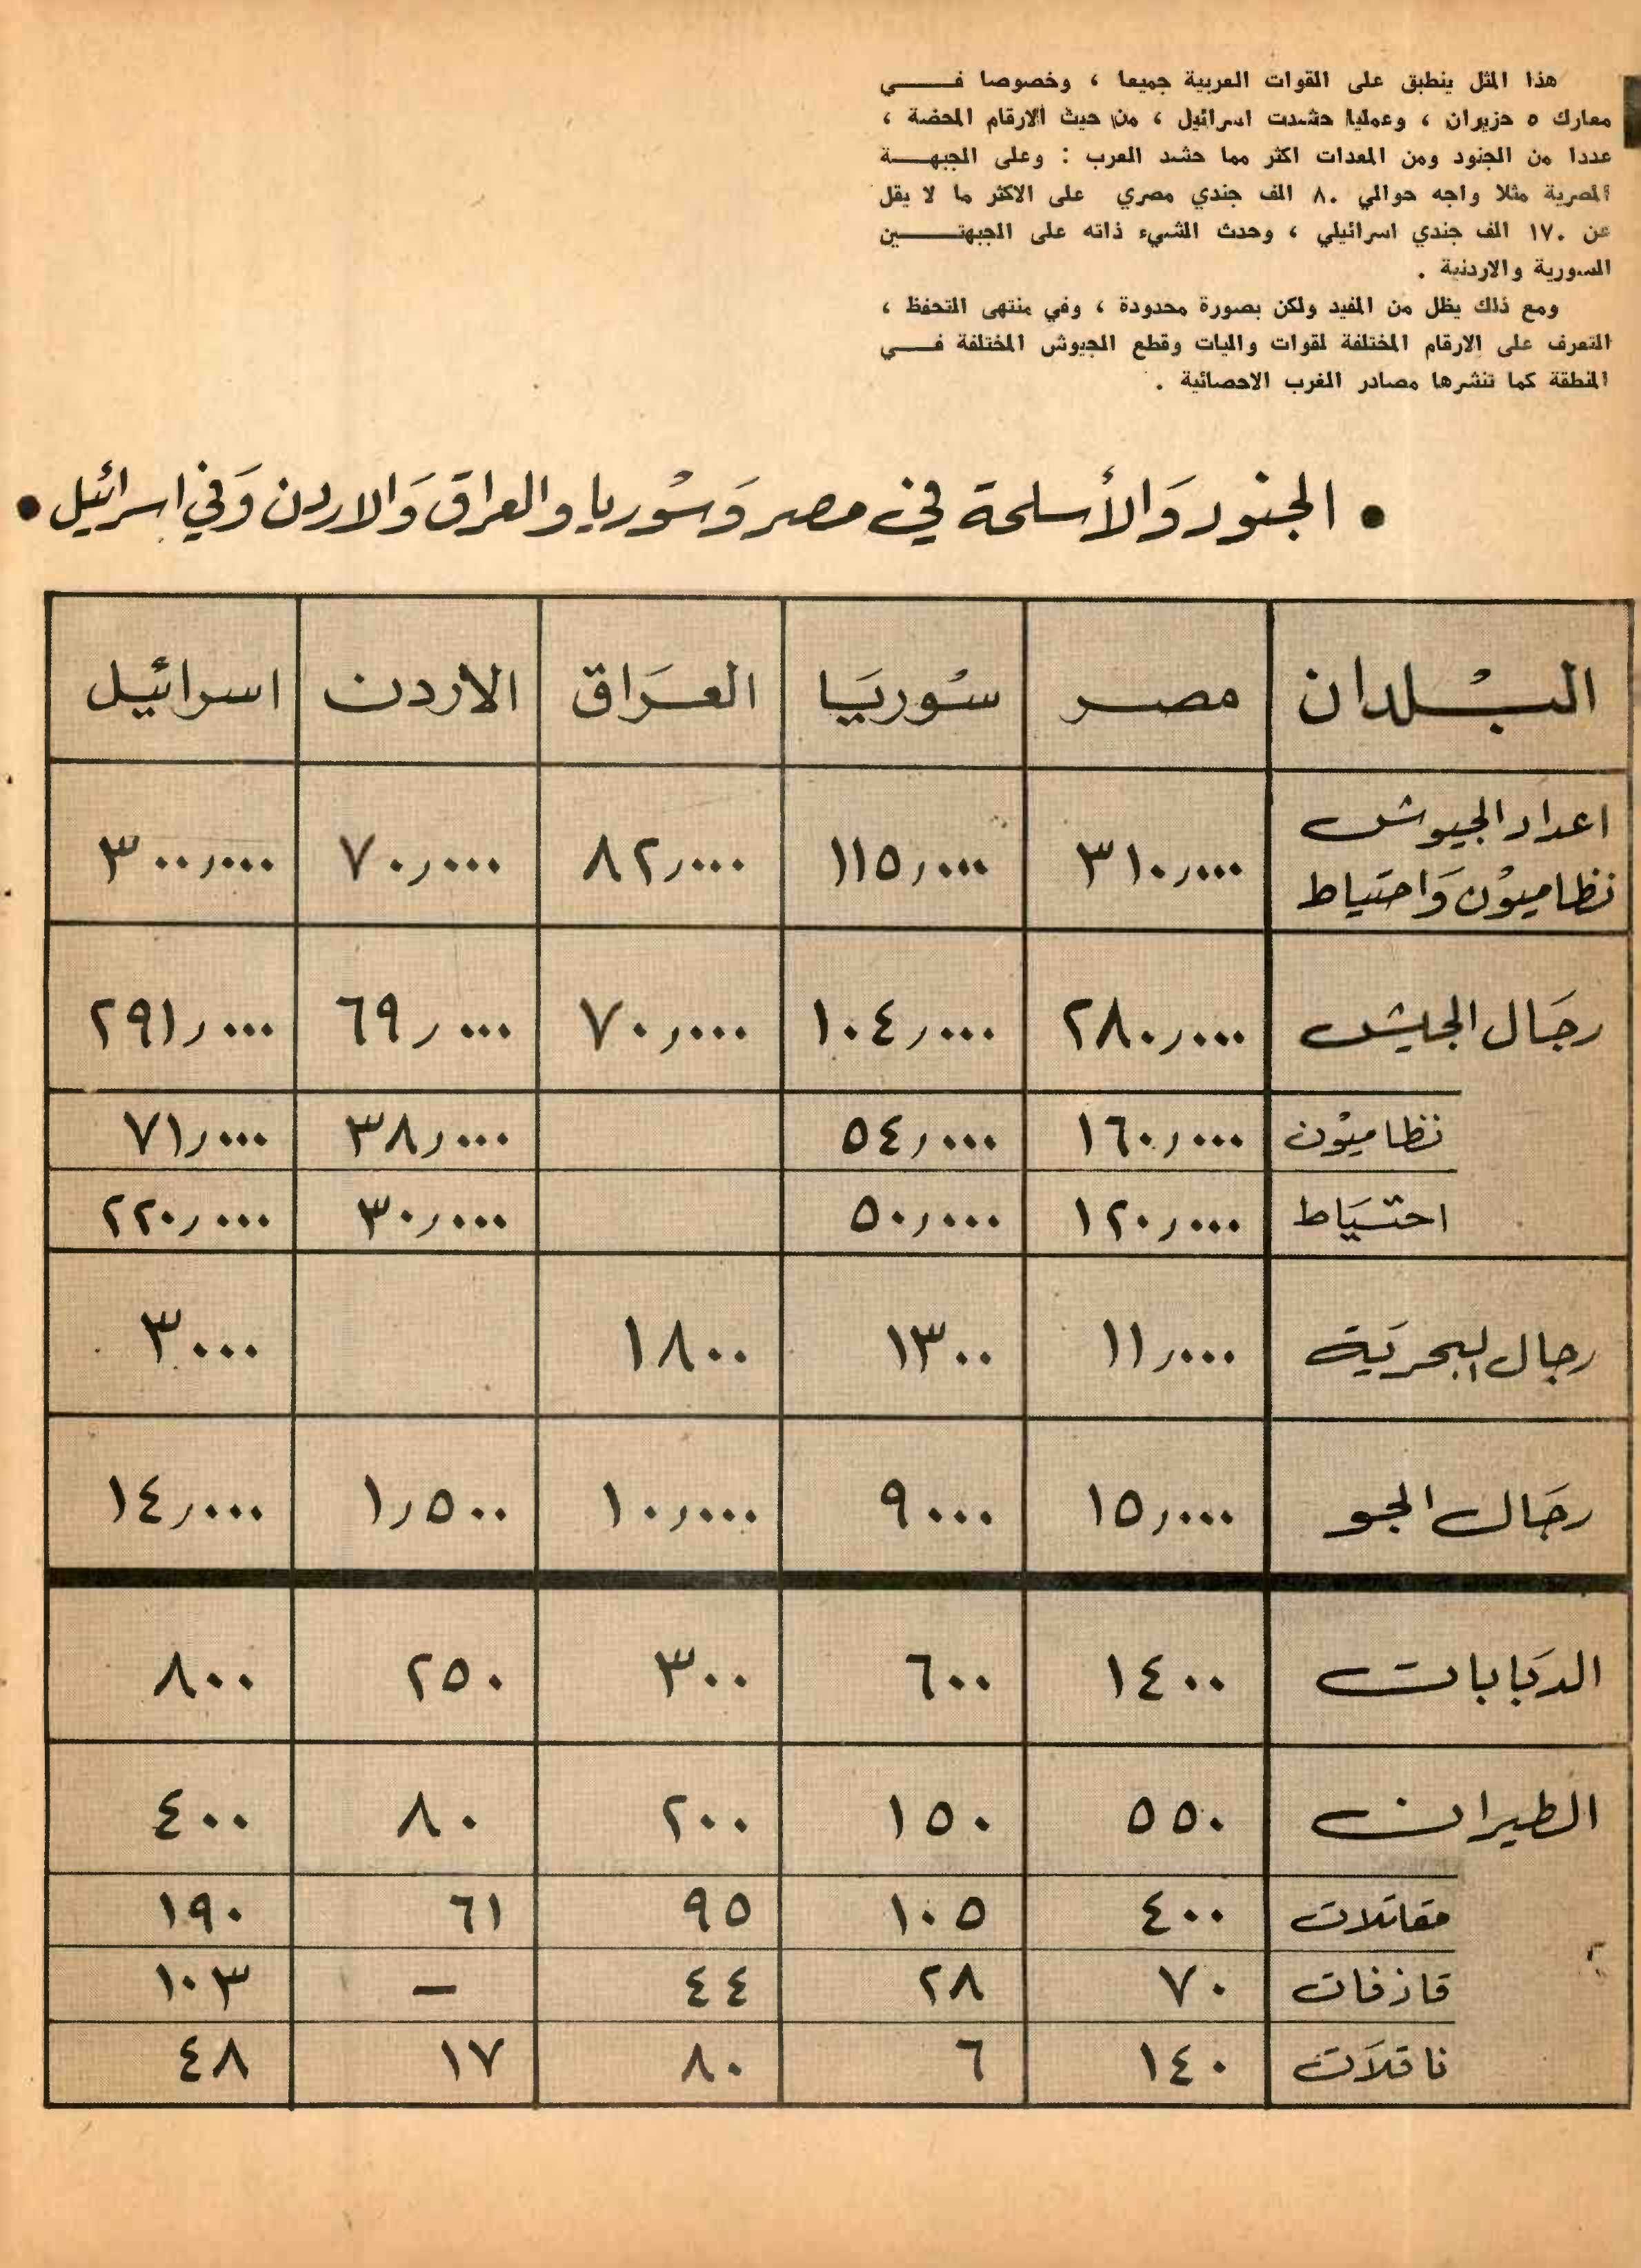 هذا المثل ينطبق على القوات العربية جميعا ، وخصوصا فـــــي
معارك ٥ حزيران ، وعمليا حشدت اسرائيل ، من حيث الارقام المحضة ،
عددا من الجنود ومن المعدات اكثر مما حشد العرب : وعلى الجبهــــة
المصرية مثلا واجه حوالي ٨٠ الف جندي مصري على الاكثر ما لا يقل
عن ١٧٠ الف جندي اسرائيلي ، وحدث الشيء ذاته على الجبهتــــــين
السورية والاردنية .
ومع ذلك يظل من المفيد ولكن بصورة محدودة ، وفي منتهى التحفظ ،
التعرف على الارقام المختلفة لقوات واليات وقطع الجيوش المختلفة فـــــي
المنطقة كما تنشرها مصادر الغرب الاحصائية .
• الجنود وَالأسلحة في مصر وَسُوريا والعراق وَالاردن وَفي اسرائيل •
البُلدان مصر سُوريَا العَراق الاردن اسرائيل
اعداد الجيوش
نظاميوُن وَاحتياط ٣١٠,٠٠٠ ١١٥,٠٠٠ ٨٢,٠٠٠ ٧٠,٠٠٠ ٣٠٠,٠٠٠
رجَال الجيش ٢٨٠,٠٠٠ ١٠٤,٠٠٠ ٧٠,٠٠٠ ٦٩,٠٠٠ ٢٩١,٠٠٠
نظاميوُن ١٦٠,٠٠٠ ٥٤,٠٠٠ ٣٨,٠٠٠ ٧١,٠٠٠
احتيَاط ١٢٠,٠٠٠ ٥٠,٠٠٠ ٣٠,٠٠٠ ٢٢٠,٠٠٠
رجال البحريَة ١١,٠٠٠ ١٣٠٠ ١٨٠٠ ٣٠٠٠
رجَال الجو ١٥,٠٠٠ ٩٠٠٠ ١٠,٠٠٠ ١,٥٠٠ ١٤,٠٠٠
الدبَابات ١٤٠٠ ٦٠٠ ٣٠٠ ٢٥٠ ٨٠٠
الطيران ٥٥٠ ١٥٠ ٢٠٠ ٨٠ ٤٠٠
مقاتلات ٤٠٠ ١٠٥ ٩٥ ٦١ ١٩٠
قاذفات ٧٠ ٢٨ ٤٤ – ١٠٣
ناقلَات ١٤٠ ٦ ٨٠ ١٧ ٤٨